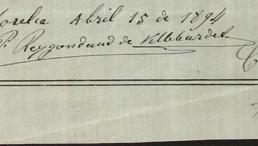 Morelia Abril 15 de 1894
P. Reygondaud de Villebardet